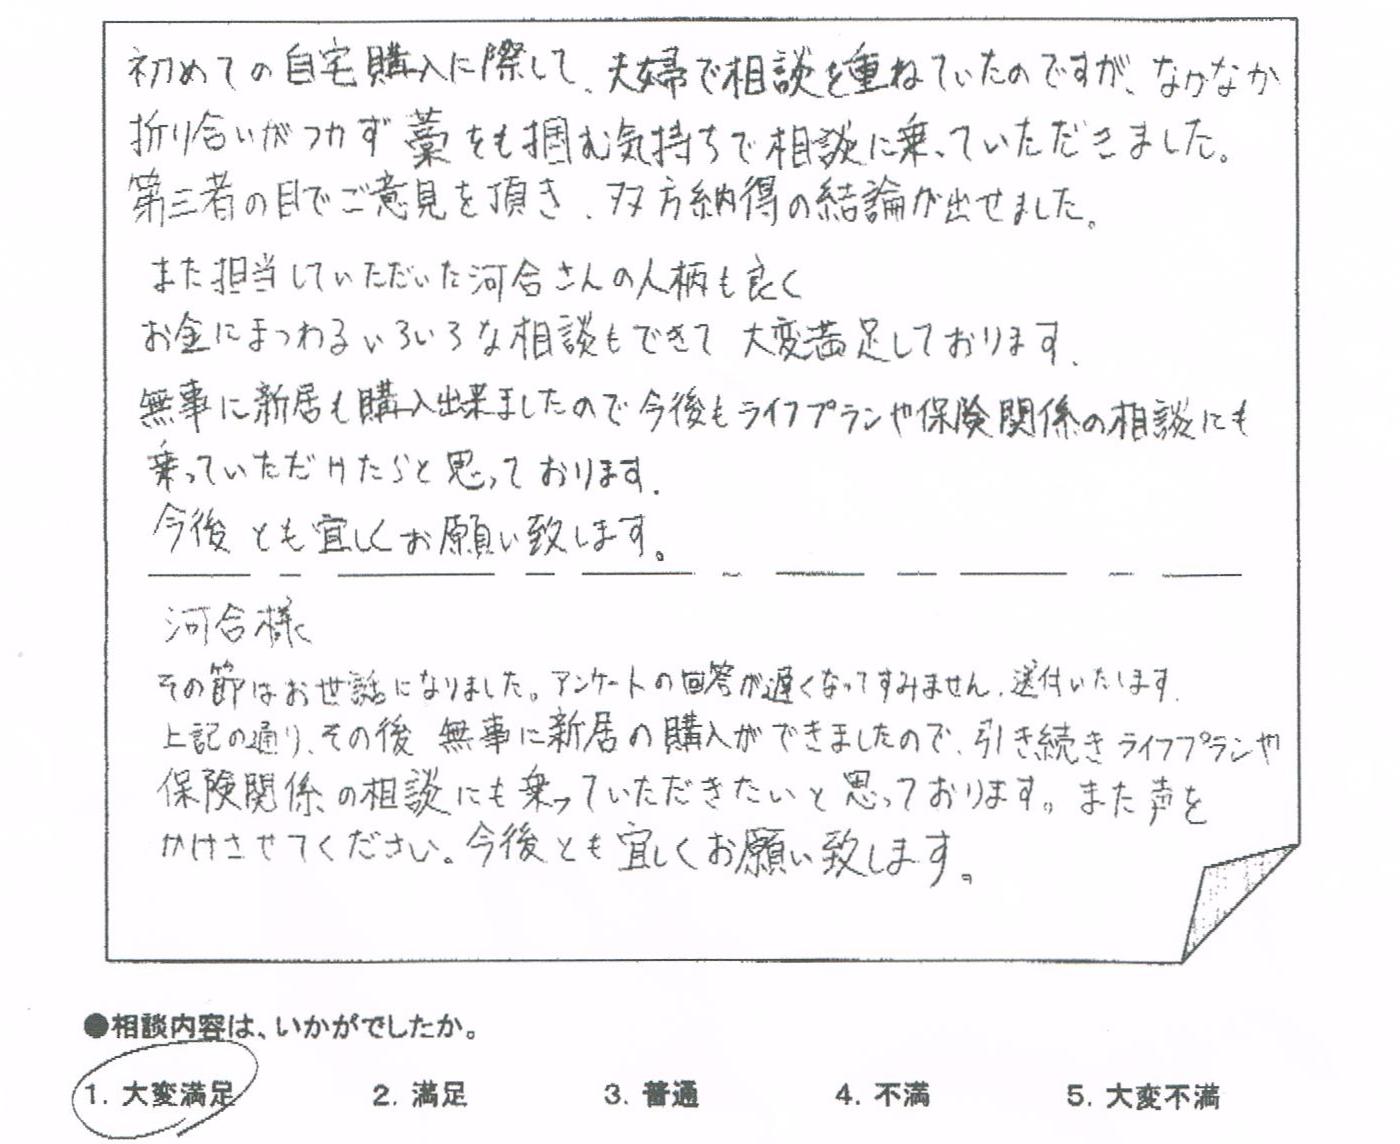 初めての自宅購入に際して、夫婦で相談を重ねていたのですが、なかなか
折り合いがつかず藁をも掴む気持ちで相談に乗っていただきました。
第三者の目でご意見を頂き、双方納得の結論が出せました。
また担当していただいた河合さんの人柄も良く
お金にまつわるいろいろな相談もできて 大変満足しております.
無事に新居も購入出来ましたので今後もライフプランや保険関係の相談にも
乗っていただけたらと思っております.
今後とも宜しくお願い致します。
河合様
その節はお世話になりました。アンケートの回答が遅くなってすみません.送付いたします.
上記の通り、その後 無事に新居の購入ができましたので、引き続きライフプランや
保険関係の相談にも乗っていただきたいと思っております。また声を
かけさせてください。今後とも宜しくお願い致します。
●相談内容は、いかがでしたか。
1. 大変満足 2. 満足 3. 普通 4. 不満 5. 大変不満